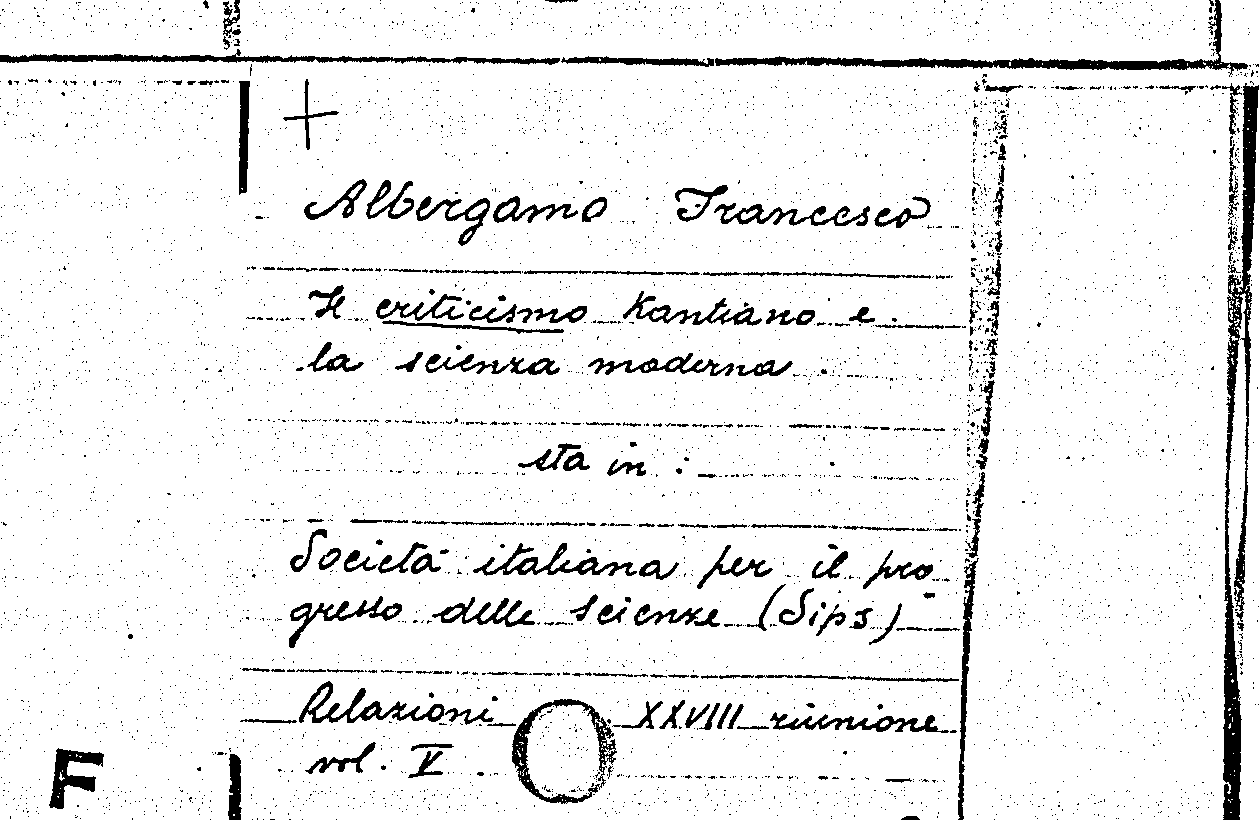 +
Albergamo Francesco
Il criticismo Kantiano e
la scienza moderna.
sta in :
Società italiana per il pro-
gresso delle scienze (Sips)
Relazioni XXVIII riunione
vol. V
F